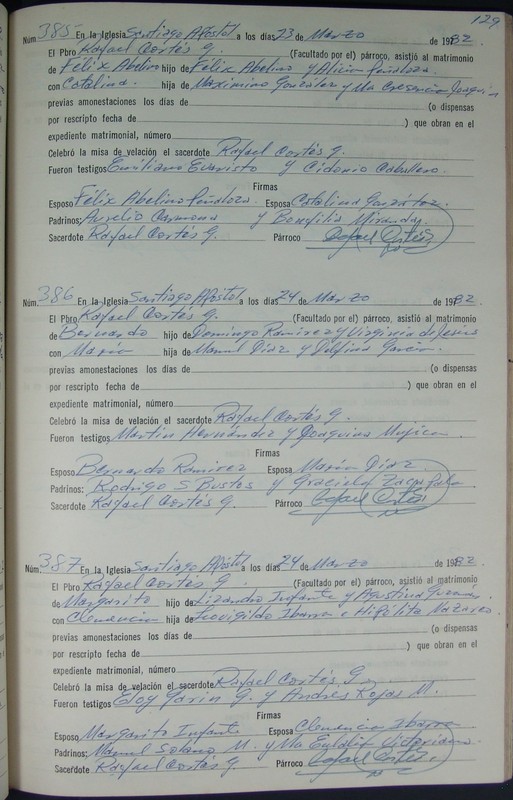 129
Núm. 385 En la Iglesia Santiago Apóstol a los días 23 de Marzo de 1982.
El Pbro Rafael Cortés G. (Facultado por el) párroco, asistió al matrimonio
de Félix Abelino hijo de Félix Abelino y Alicia Peñaloza.
con Catalina. hija de Maximino González y Ma Cresencia Joaquin
previas amonestaciones los días de (o dispensas
por rescripto fecha de ) que obran en el
expediente matrimonial, número
Celebró la misa de velación el sacerdote Rafael Cortés G.
Fueron testigos Emiliano Evaristo y Cidonio Caballero.
Firmas
Esposo Félix Abelino Peñaloza. Esposa Catalina González.
Padrinos; Aurelio Carmona y Benfilia Miranda.
Sacerdote Rafael Cortés G. Párroco Rafael Cortés
Núm. 386 En la Iglesia Santiago Apóstol a los días 24 de Marzo de 1982.
El Pbro Rafael Cortés G. (Facultado por el) párroco, asistió al matrimonio
de Bernardo hijo de Domingo Ramirez y Virginia de Jesús
con María hija de Manuel Díaz y Delfina García.
previas amonestaciones los días de (o dispensas
por rescripto fecha de ) que obran en el
expediente matrimonial, número
Celebró la misa de velación el sacerdote Rafael Cortés G.
Fueron testigos Martín Hernández y Joaquina Mujica.
Firmas
Esposo Bernardo Ramirez Esposa María Díaz.
Padrinos; Rodrigo S Bustos y Graciela
Sacerdote Rafael Cortés G. Párroco Rafael Cortés
Núm. 387 En la Iglesia Santiago Apóstol a los días 24 de Marzo de 1982.
El Pbro Rafael Cortés G. (Facultado por el) párroco, asistió al matrimonio
de Margarito hijo de Lizandro Infante y Agustina Guzmán.
con Clemencia hija de Leovigildo Ibarra e Hipólita Nazareo.
previas amonestaciones los días de (o dispensas
por rescripto fecha de ) que obran en el
expediente matrimonial, número
Celebró la misa de velación el sacerdote Rafael Cortés G.
Fueron testigos Eloy G. y Andrés Rojas M.
Firmas
Esposo Margarito Infante Esposa Clemencia Ibarra
Padrinos; Manuel Solano M. y Ma Eulalia Victoriano.
Sacerdote Rafael Cortés G. Párroco Rafael Cortés